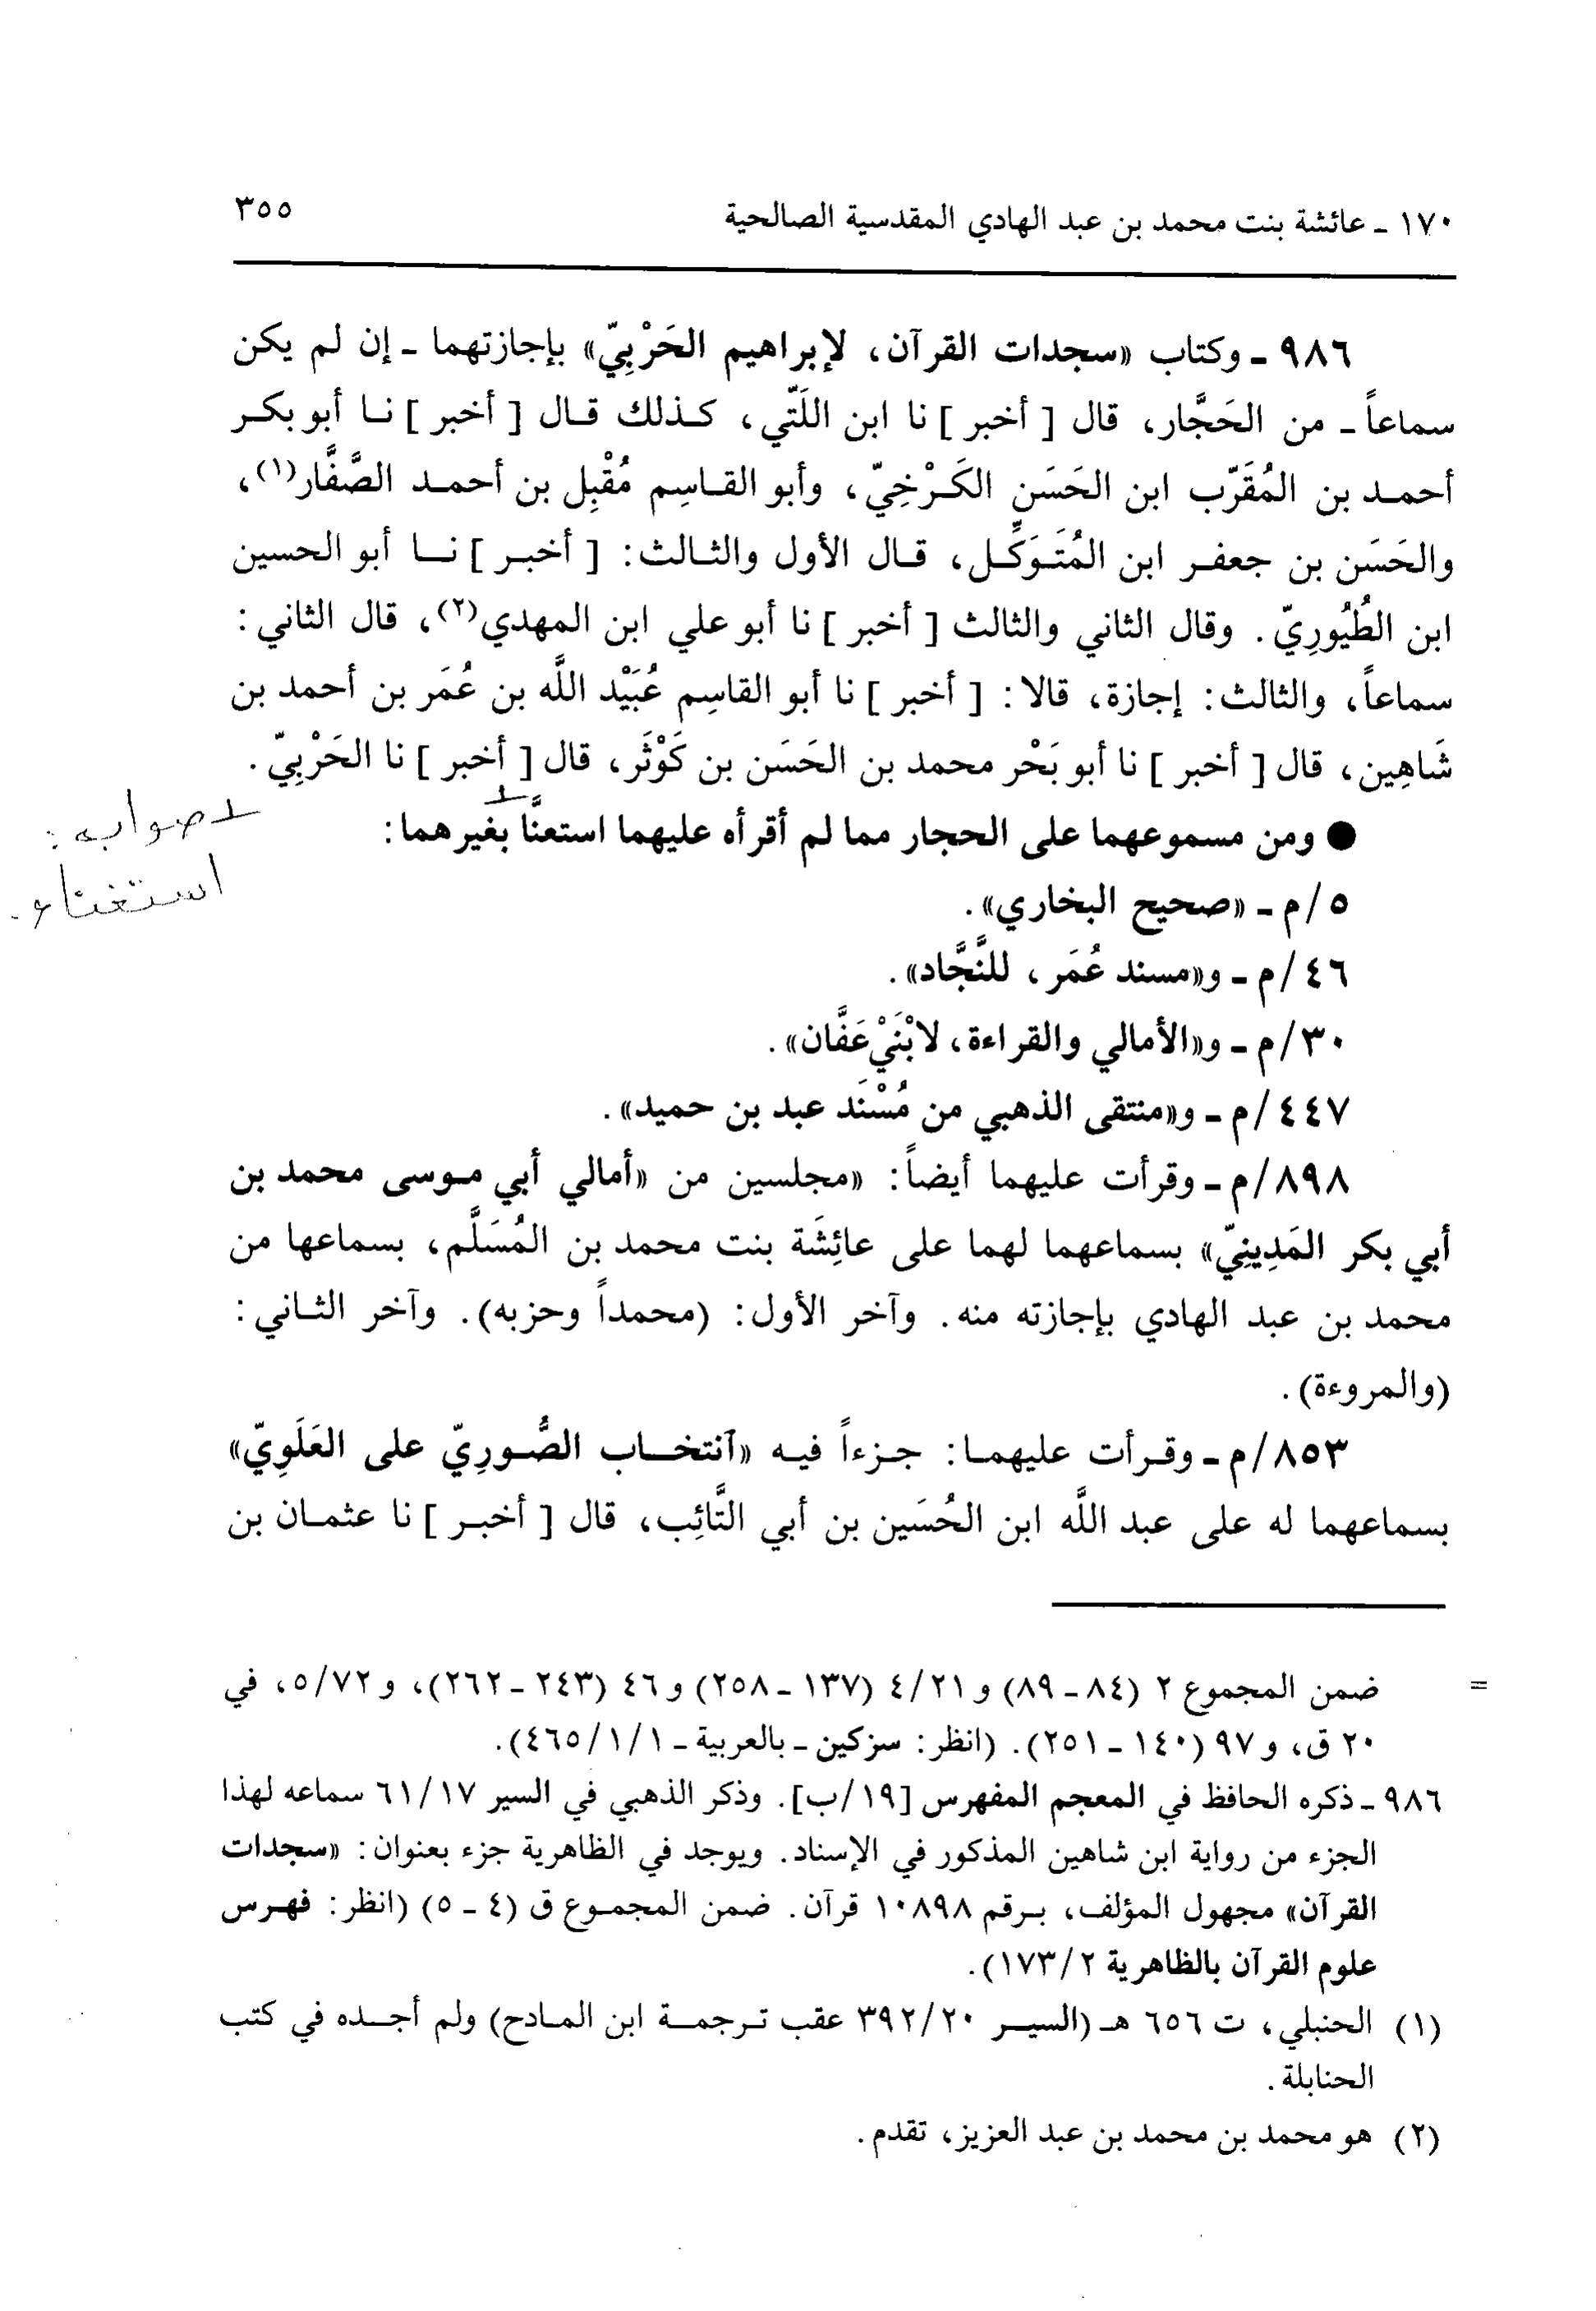 ١٧٠ ـ عائشة بنت محمد بن عبد الهادي المقدسية الصالحية ٣٥٥
٩٨٦ ـ وكتاب «سجدات القرآن، لإبراهيم الحَرْبِيّ» بإجازتهما ـ إن لم يكن
سماعاً ـ من الحَجَّار، قال [ أخبر ] نا ابن اللَتّي، كـذلك قـال [ أخبر ] نـا أبو بكـر
أحمـد بن المُقَرّب ابن الحَسَن الكَـرْخِيّ، وأبو القـاسِم مُقْبِل بن أحمـد الصَّفَّار(١)،
والحَسَن بن جعفـر ابن المُتَـوَكِّـل، قـال الأول والثـالث: [ أخبـر ] نـا أبو الحسين
ابن الطُيُورِيّ. وقال الثاني والثالث [ أخبر ] نا أبو علي ابن المهدي(٢)، قال الثاني:
سماعاً، والثالث: إجازة، قالا: [ أخبر ] نا أبو القاسِم عُبَيْد اللَّه بن عُمَر بن أحمد بن
شَاهِين، قال [ أخبر ] نا أبو بَحْر محمد بن الحَسَن بن كَوْثَر، قال [ أخبر ] نا الحَرْبِيّ.
● ومن مسموعهما على الحجار مما لم أقرأه عليهما استعنَّا بغيرهما:
صوابه:
استغناء.
٥/م ـ «صحيح البخاري».
٤٦/م ـ و«مسند عُمَر، للنَّجَّاد».
٣٠/م ـ و«الأمالي والقراءة، لابْنَيْ عَفَّان».
٤٤٧/م ـ و«منتقى الذهبي من مُسْنَد عبد بن حميد».
٨٩٨/م ـ وقرأت عليهما أيضاً: «مجلسين من «أمالي أبي مـوسى محمد بن
أبي بكر المَدِينِيّ» بسماعهما لهما على عائِشَة بنت محمد بن المُسَلَّم، بسماعها من
محمد بن عبد الهادي بإجازته منه. وآخر الأول: (محمداً وحزبه). وآخر الثـاني:
(والمروءة).
٨٥٣/م ـ وقـرأت عليهمـا: جـزءاً فيـه «آنتخـاب الصُّـورِيّ على العَلَوِيّ»
بسماعهما له على عبد اللَّه ابن الحُسَين بن أبي التَّائِب، قال [ أخبـر ] نا عثمـان بن
= ضمن المجموع ٢ (٨٤ ـ ٨٩) و ٤/٢١ (١٣٧ ـ ٢٥٨) و ٤٦ (٢٤٣ ـ ٢٦٢)، و ٥/٧٢، في
٢٠ ق، و ٩٧ (١٤٠ ـ ٢٥١). (انظر: سزكين ـ بالعربية ـ ٤٦٥/١/١).
٩٨٦ ـ ذكره الحافظ في المعجم المفهرس [١٩/ب]. وذكر الذهبي في السير ٦١/١٧ سماعه لهذا
الجزء من رواية ابن شاهين المذكور في الإسناد. ويوجد في الظاهرية جزء بعنوان: «سجدات
القرآن» مجهول المؤلف، بـرقم ١٠٨٩٨ قرآن. ضمن المجمـوع ق (٤ ـ ٥) (انظر: فهـرس
علوم القرآن بالظاهرية ١٧٣/٢).
(١) الحنبلي، ت ٦٥٦ هـ (السيـر ٣٩٢/٢٠ عقب تـرجمـة ابن المـادح) ولم أجـده في كتب
الحنابلة.
(٢) هو محمد بن محمد بن عبد العزيز، تقدم.